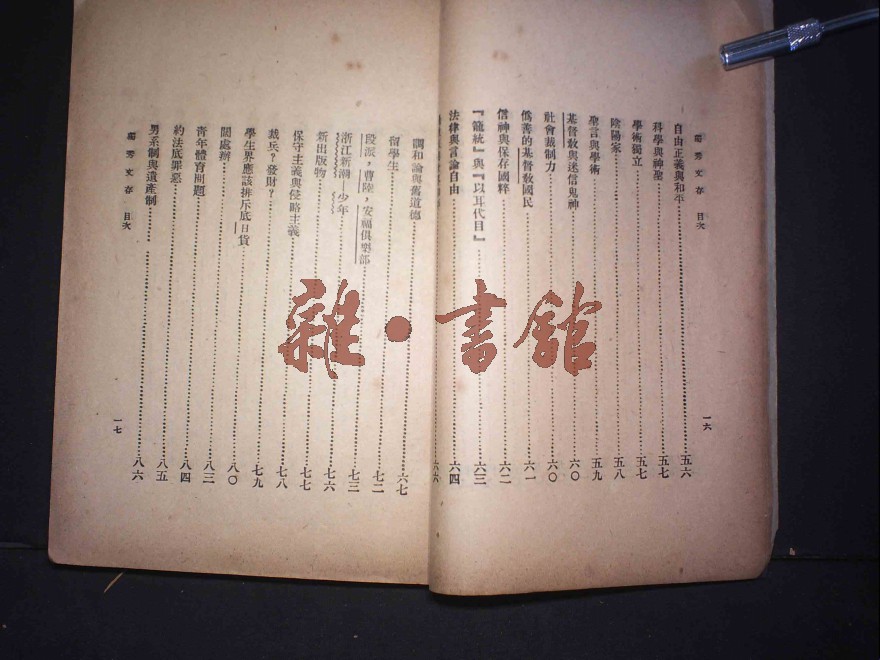 獨秀文存 目次
自由正義與和平……五六
科學與神聖……五七
學術獨立……五七
陰陽家……五八
聖言與學術……五九
基督敎與迷信鬼神……六〇
社會裁制力……六〇
僞善的基督敎國民……六一
信神與保存國粹……六二
『籠統』與『以耳代目』……六三
法律與言論自由……六四
六六
一六
調和論與舊道德……六七
留學生……七二
段派，曹陸，安福俱樂部……七三
浙江新潮——少年……七六
新出版物……七七
保守主義與侵略主義……七八
裁兵？發財？……七八
學生界應該排斥底日貨……七九
閻處辦……八〇
靑年體育問題……八三
約法底罪惡……八四
男系制與遺產制……八五
八六
獨秀文存 目次
一七
雜·書館